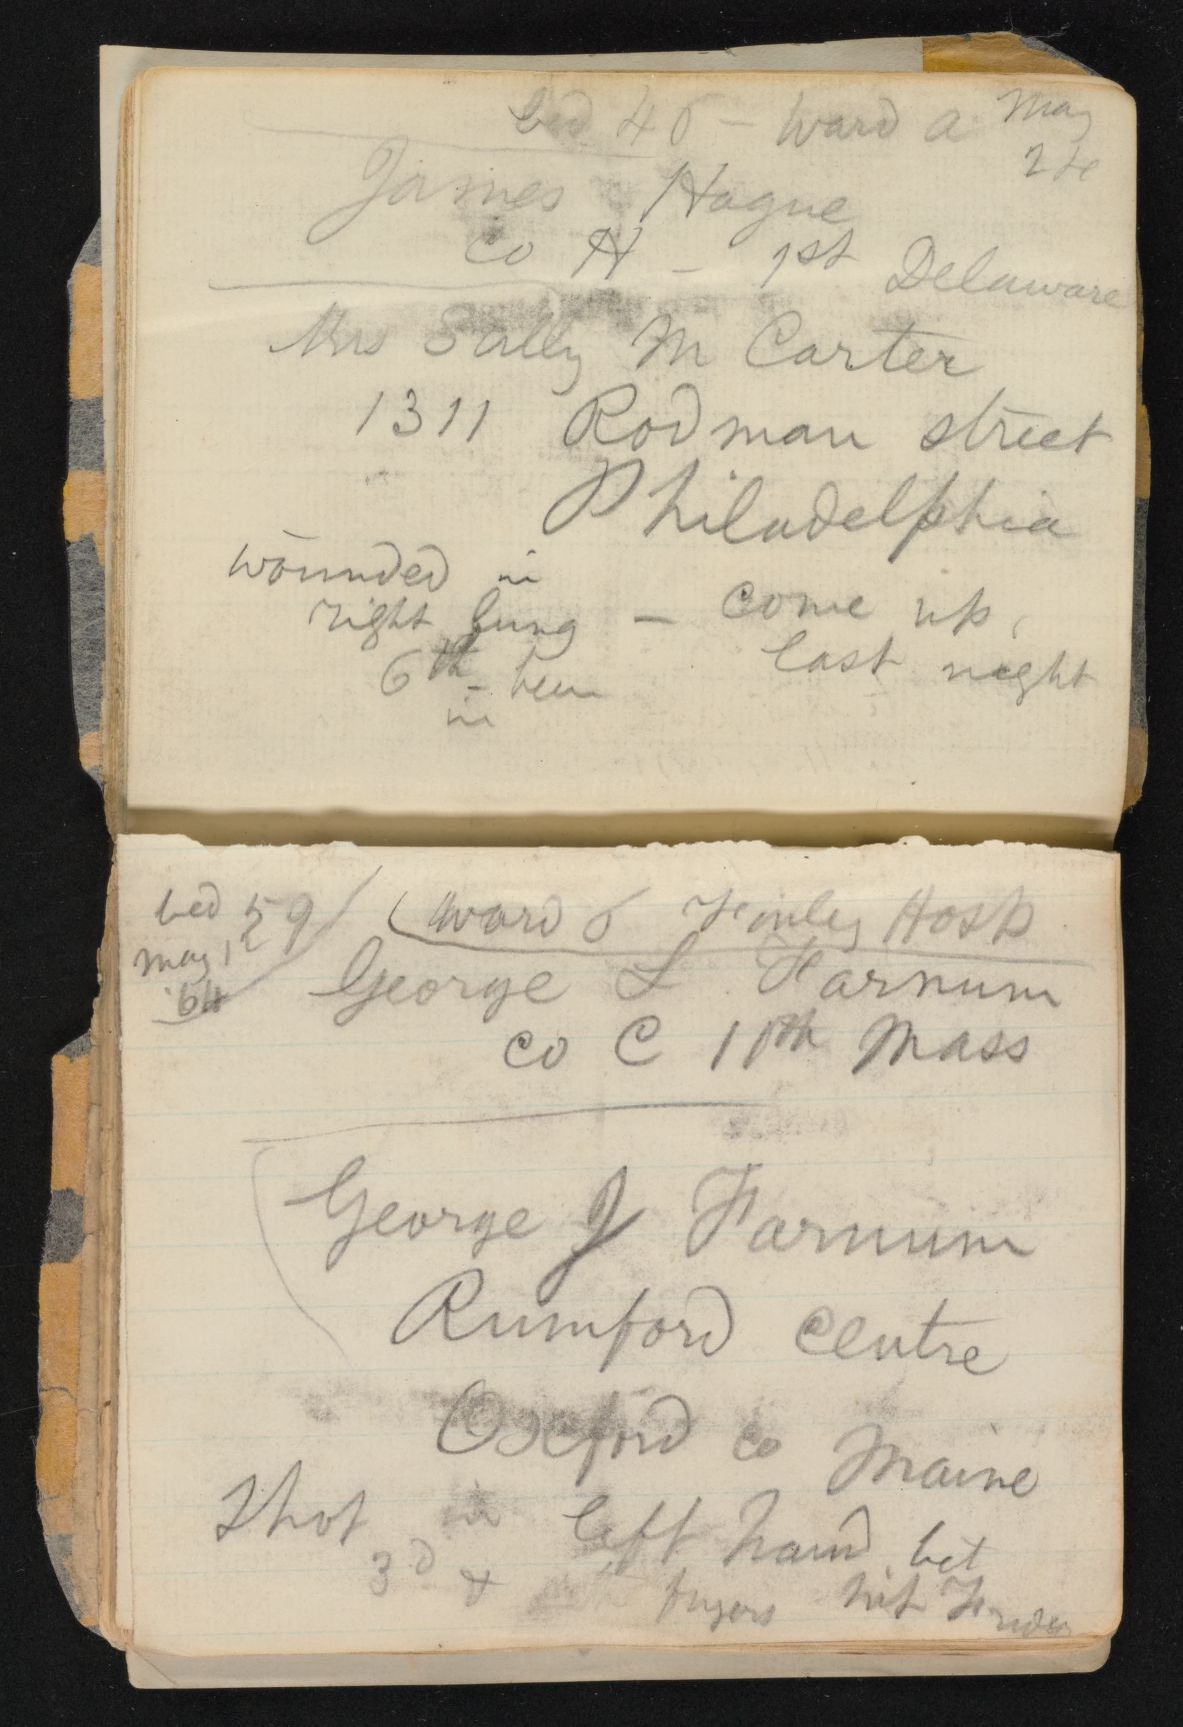 bed 45 - Ward A May
24
James Hague
co H - 1st Delaware
Mrs Sally M Carter
1311 Rodman street
Philadelphia
wounded in
right lung - come up,
6th - last night
in
bed 59 / Ward 5 Finley Hosp
may 12
'64
George L Farnum
co C 10th Mass
George J Farnum
Rumford Centre
Oxford co Maine
Shot in left hand bet
3d & fingers hit Friday